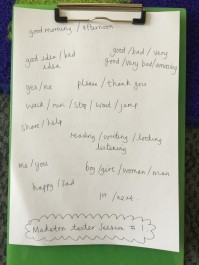 good morning / afternoon
good idea / bad idea
good / bad / very good / very bad / amazing
yes / no
please / thank you
walk / run / stop / wait / jump
share / help
reading / writing / looking
listening
me / you
boy / girl / woman / man
happy / sad
1st / next
Makaton taster lesson # 1